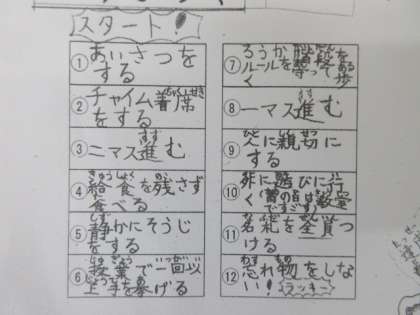 スタート!
①あいさつを
する
②チャイム着席
をする
③ニマス進む
④給食を残さず
食べる
⑤静かにそうじ
をする
⑥授業で一回以
上手を挙げる
⑦ろうか階段を
ルールを守って歩
く
⑧一マス進む
⑨人に親切に
する
⑩外に遊びに行
く(雨の日は教室
ですごす)
⑪名札を全員つ
ける
⑫忘れ物をしな
い!ラッキー